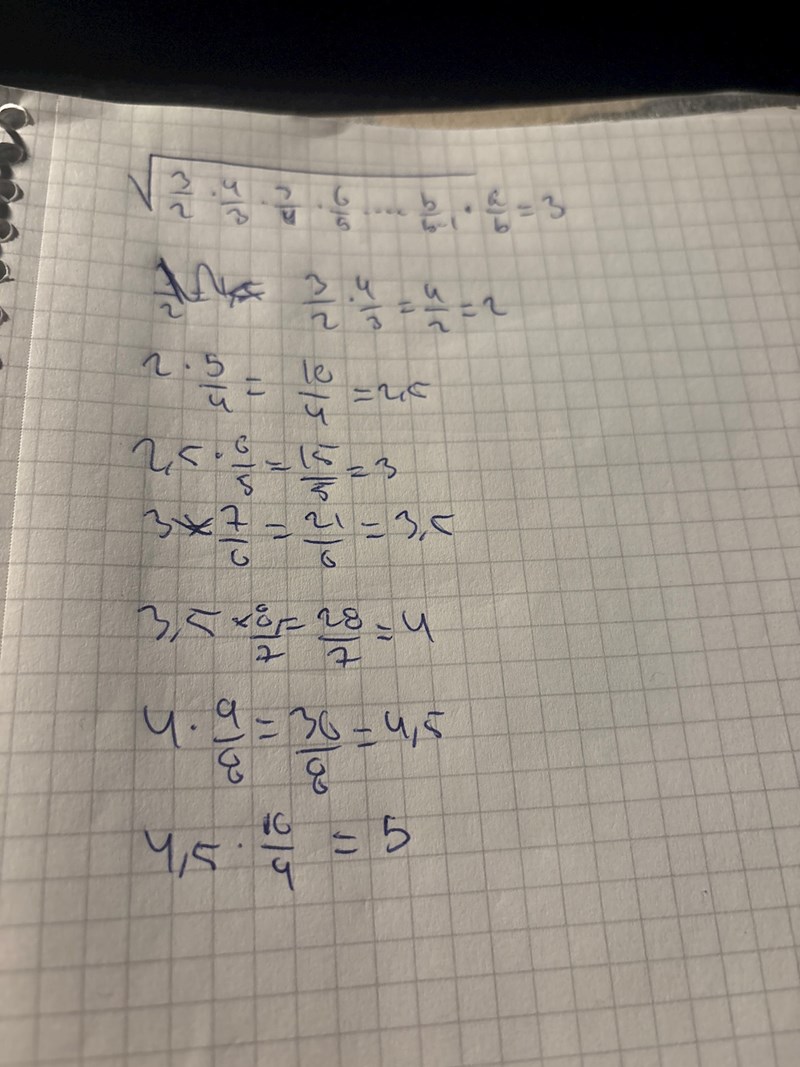 √(3/2 · 4/3 · 5/4 · 6/5 .... b/b-1 · a/b = 3
3/2 · 4/3 = 4/2 = 2
2 · 5/4 = 10/4 = 2,5
2,5 · 6/5 = 15/5 = 3
3 × 7/6 = 21/6 = 3,5
3,5 × 8/7 = 28/7 = 4
4 · 9/8 = 36/8 = 4,5
4,5 · 10/9 = 5